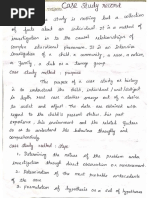 Case Study record
case study is nothing but a collection
of facts about an individual. It is a method of
investigation on to the causal relationships of
complex educational phenomenon. It is an intensive
investigation of a child, a community, a case, a nation
a family, a club as a Savage group.
Case study method : purpose
The purpose of a case study as history
is to understand the child, individual
subject. Case studies emerge out of a desire
to assist and adjust the child who was obtained with
regard to the child's present status, his past
experience, his environment and the related factors
so as to understand the behaviour thoroughly and
comprehensively.
Case study method : Steps
1. Determining the nature of the problem under
investigation through direct observation or announcement
2. Determination of the most probable antecedents
of the case
3. Formulation of hypothesis as a set of hypotheses